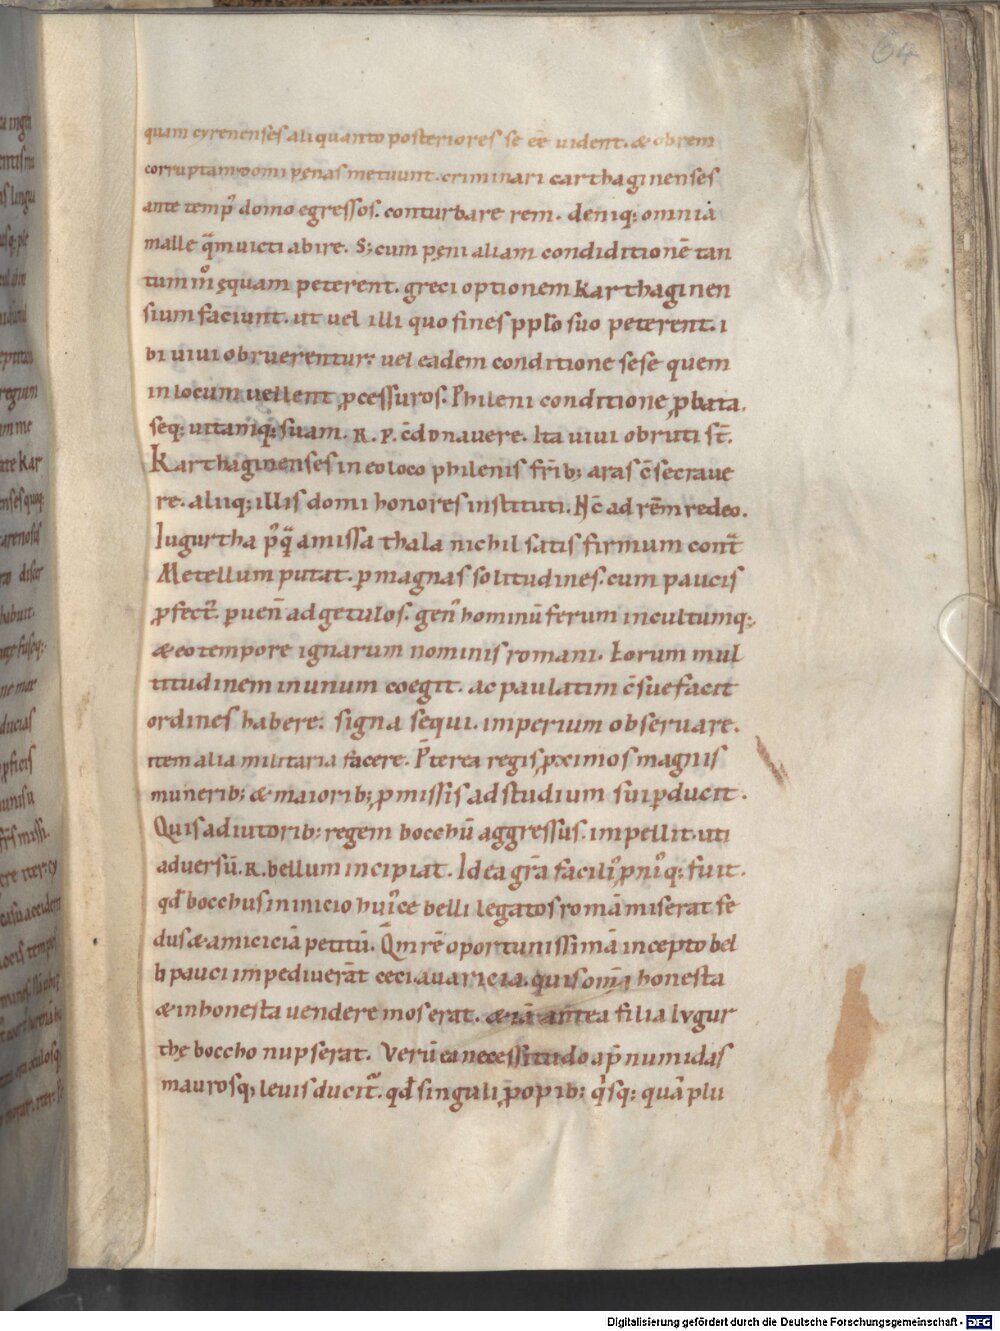 64
quam cyrenenses aliquanto posteriores se ēē uident. & obrem
corruptam domi pęnas metuunt. criminari carthaginenses
ante temp᷒ domo egressos. conturbare rem. deniq; omnia
malle q̄m uicti abire. S; cum pęni aliam condiditionē tan
tum m͛ ęquam peterent. greci optionem Karthaginen
sium faciunt. ut uel illi quo fines pplo suo peterent. i
bi uiui obruerentur. uel eadem conditione sese quem
in locum uellent ꝓcessuros. Phileni conditione ꝓbata.
seq; uitamq; suam. R. P. c̄donauere. Ita uiui obruti st̄.
Karthaginenses in eo loco philenis fr̄ib; aras c̄secraue
re. aliiq; illis domi honores instituti. Nc̄ ad rēm redeo.
Iugurtha p᷒q̄ amissa thala nichil satis firmum cont̄
Metellum putat. ꝑ magnas solitudines. cum paucis
ꝓfect᷒. ꝑuen̄ ad getulos. gen᷒ hominū ferum incultumq;.
& eo tempore ignarum nominis romani. Eorum mul
titudinem in unum coegit. ac paulatim c̄suefacit
ordines habere. signa sequi. imperium obseruare.
item alia militaria facere. P̄terea regis ꝓximos magnis
munerib; & maiorib; ꝓmissis ad studium sui ꝑducit.
Quis adiutorib; regem bocchū aggressus. impellit. uti
aduersū. R. bellum incipiat. Id ea grā facili᷒ ꝓni᷒q; fuit.
qđ bocchus in inicio hui᷒ce belli legatos romā miserat fe
dus & amiciciā petitū. Qm̄ rē oportunissimā incepto bel
li pauci impediuerāt ceci auaricia. quis om̄ia honesta
& inhonesta uendere mos erat. & iā antea filia Iugur
thę boccho nupserat. Verū ea necessitudo ap̄ numidas
maurosq; leuis ducit᷒. qđ singuli ꝓ opib; q͛sq; quā plu
Digitalisierung gefördert durch die Deutsche Forschungsgemeinschaft - DFG